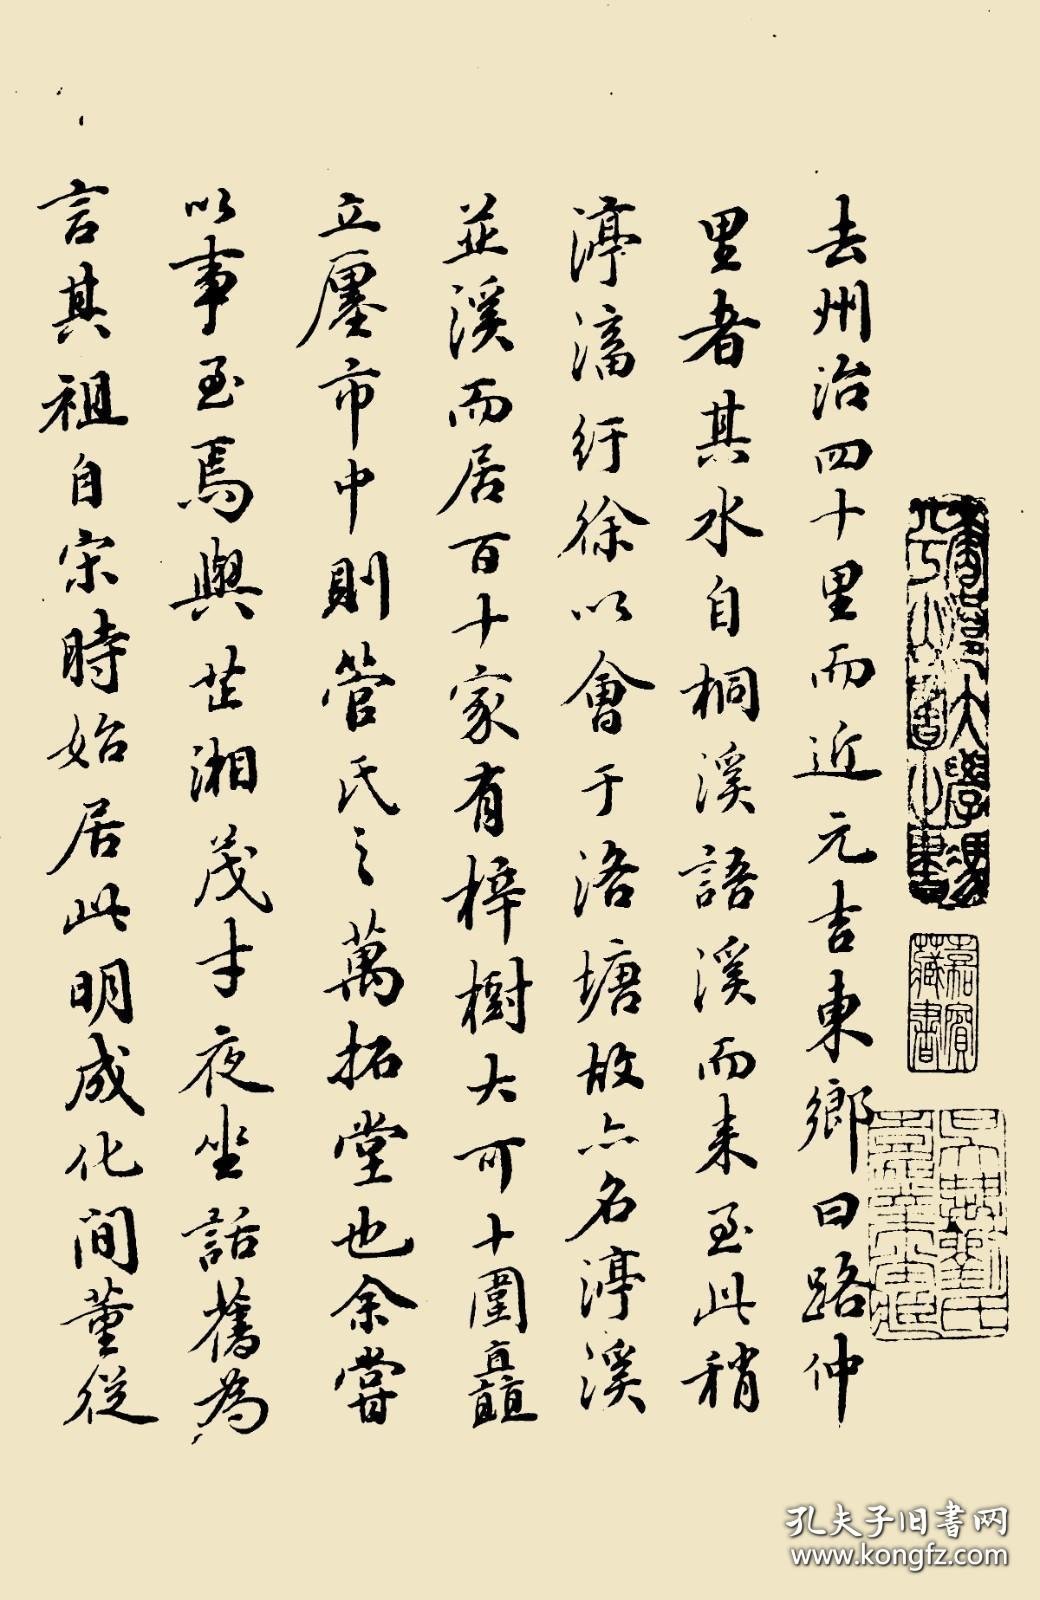 去州治四十里而近元吉東鄉曰路仲
里者其水自桐溪語溪而来至此稍
渟滀紆徐以會于洛塘故亦名渟溪
並溪而居百十家有梓樹大可十圍矗
立廛市中則管氏之萬拓堂也余嘗
以事至焉與芷湘茂才夜坐話舊為
言其祖自宋時始居此明成化間董從
嘉賓
藏書
孔夫子旧书网
www.kongfz.com